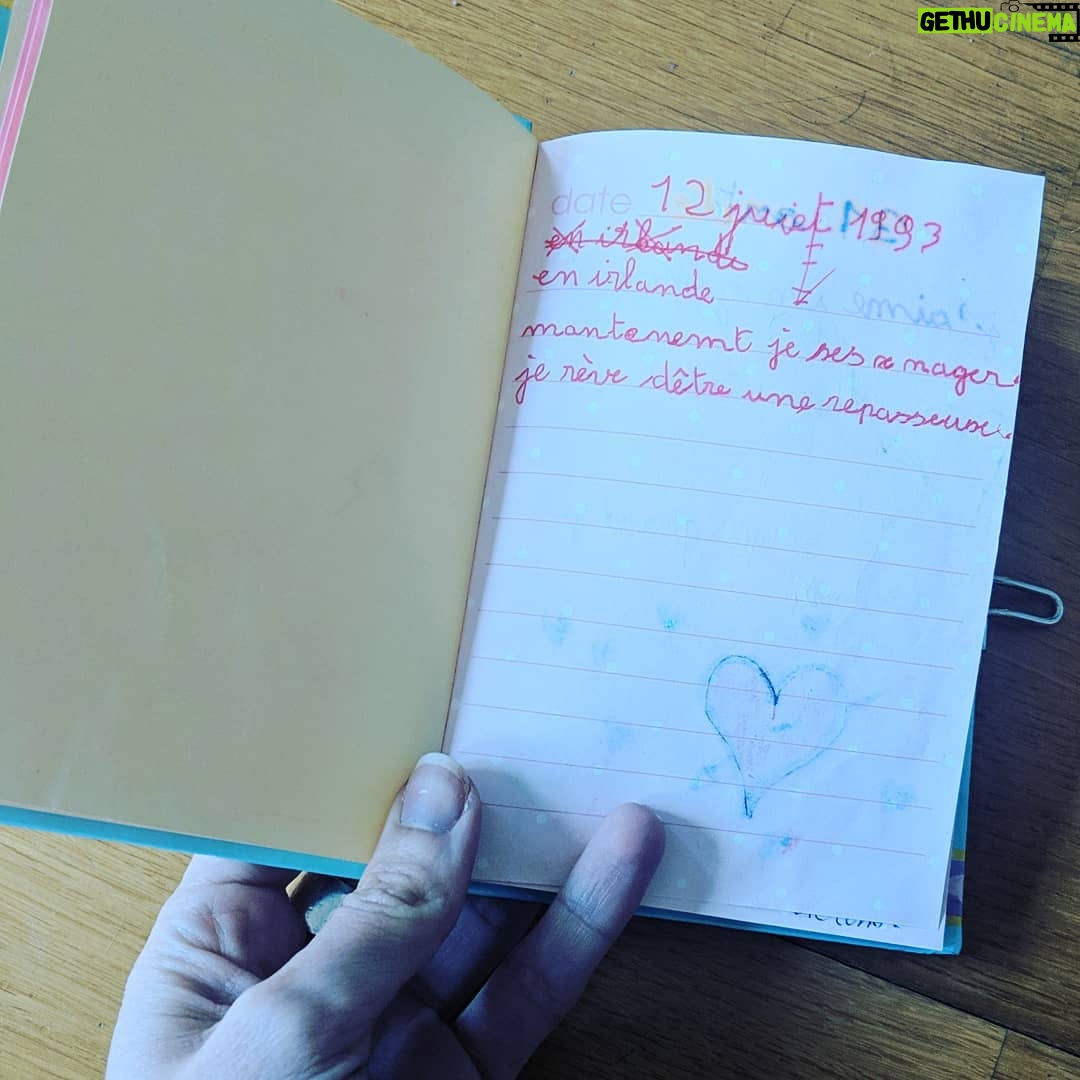 GETHUCINEMA
date 12 juiet 1993
en irlande
en irlande
mantenemt je ses a nager.
je rève dêtre une repasseuse.
j'aime